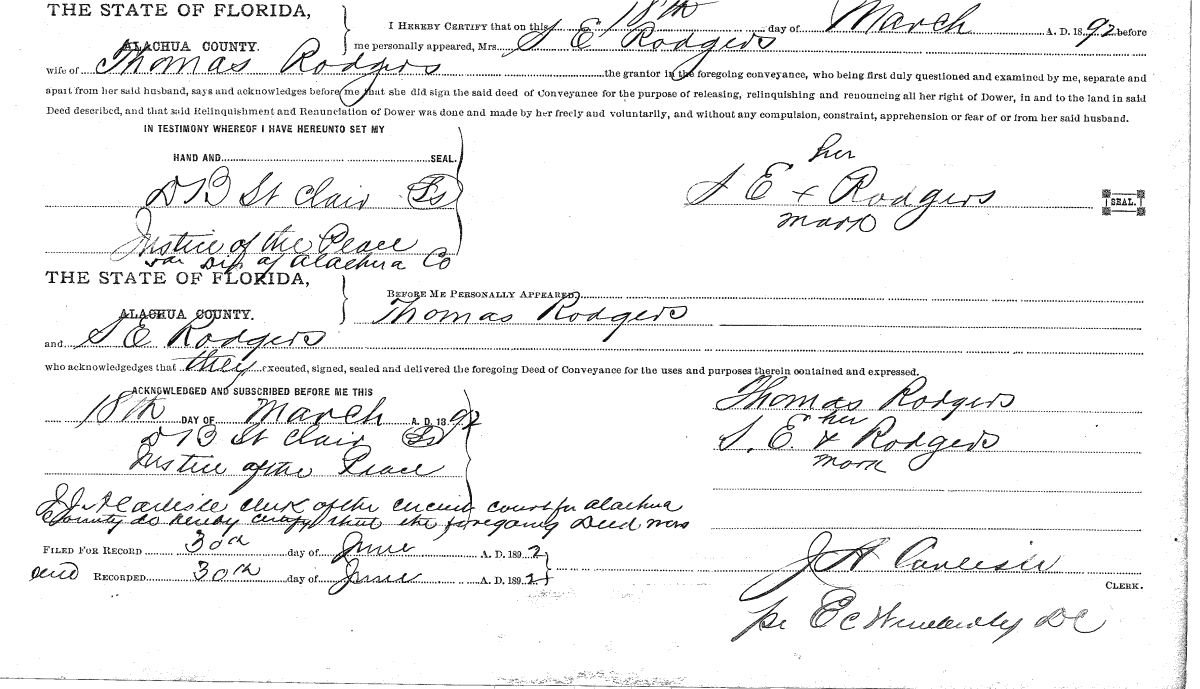 THE STATE OF FLORIDA,
ALACHUA COUNTY.
I HEREBY CERTIFY that on this 18th day of March A. D. 1892 before
me personally appeared, Mrs. S E Rodgers
wife of Thomas Rodgers the grantor in the foregoing conveyance, who being first duly questioned and examined by me, separate and
apart from her said husband, says and acknowledges before me that she did sign the said deed of Conveyance for the purpose of releasing, relinquishing and renouncing all her right of Dower, in and to the land in said
Deed described, and that said Relinquishment and Renunciation of Dower was done and made by her freely and voluntarily, and without any compulsion, constraint, apprehension or fear of or from her said husband.
IN TESTIMONY WHEREOF I HAVE HEREUNTO SET MY
HAND AND SEAL.
D B St Clair Ls
Justice of the Peace
of Alachua Co
her
S E x Rodgers SEAL.
mark
THE STATE OF FLORIDA,
ALACHUA COUNTY.
BEFORE ME PERSONALLY APPEARED
Thomas Rodgers
and S E Rodgers
who acknowledges that they executed, signed, sealed and delivered the foregoing Deed of Conveyance for the uses and purposes therein contained and expressed.
ACKNOWLEDGED AND SUBSCRIBED BEFORE ME THIS
18th DAY OF March A. D. 1892
D B St Clair Ls
Justice of the Peace
Thomas Rodgers
her
S. E. x Rodgers
mark
I J. A Carlisle Clerk of the circuit court for Alachua
County do hereby certify that the foregoing Deed was
FILED FOR RECORD 30th day of June A. D. 1892
and RECORDED 30th day of June A. D. 1892
J A Carlisle
CLERK.
pr E C DC